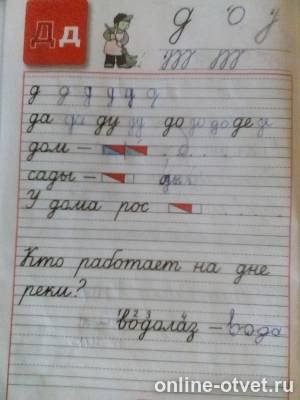 Д д
д о у
д д д д д д
да да ду ду до до до до де д
дом –
сады – ды
У дома рос
Кто работает на дне
реки?
1 2 3 4
водолаз – вода
online-otvet.ru